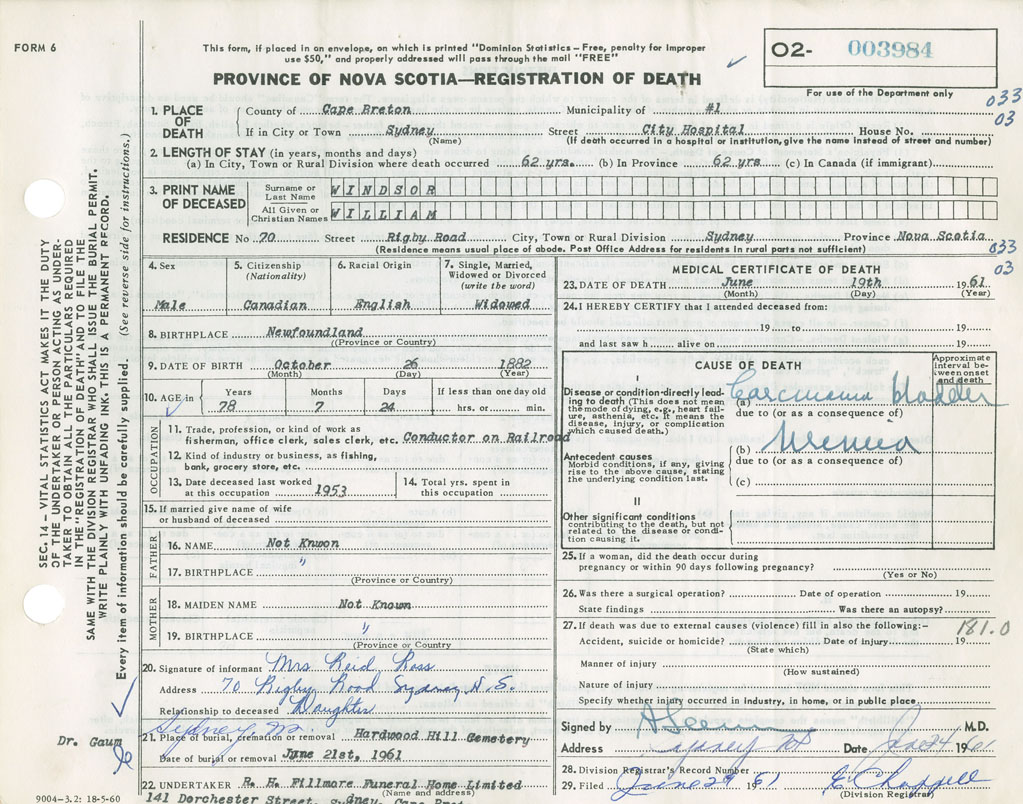 FORM 6
This form, if placed in an envelope, on which is printed "Dominion Statistics – Free, penalty for improper
use $50," and properly addressed will pass through the mail "FREE"
PROVINCE OF NOVA SCOTIA—REGISTRATION OF DEATH
O2- 003984
For use of the Department only
033
03
SEC. 14 – VITAL STATISTICS ACT MAKES IT THE DUTY
OF THE UNDERTAKER OR PERSON ACTING AS UNDER-
TAKER TO OBTAIN ALL THE PARTICULARS REQUIRED
IN THE "REGISTRATION OF DEATH" AND TO FILE THE
SAME WITH THE DIVISION REGISTRAR WHO SHALL ISSUE THE BURIAL PERMIT.
WRITE PLAINLY WITH UNFADING INK. THIS IS A PERMANENT RECORD.
Every item of information should be carefully supplied. (See reverse side for instructions.)
1. PLACE OF DEATH
County of Cape Breton Municipality of #1
If in City or Town Sydney Street City Hospital House No.
(Name) (If death occurred in a hospital or institution, give the name instead of street and number)
2. LENGTH OF STAY (in years, months and days)
(a) In City, Town or Rural Division where death occurred 62 yrs. (b) In Province 62 yrs (c) In Canada (if immigrant)
3. PRINT NAME OF DECEASED
Surname or Last Name WINDSOR
All Given or Christian Names WILLIAM
RESIDENCE No 70 Street Rigby Road City, Town or Rural Division Sydney Province Nova Scotia
(Residence means usual place of abode. Post Office Address for residents in rural parts not sufficient)
033
03
4. Sex Male
5. Citizenship (Nationality) Canadian
6. Racial Origin English
7. Single, Married, Widowed or Divorced (write the word) Widowed
8. BIRTHPLACE Newfoundland
(Province or Country)
9. DATE OF BIRTH October 26 1882
(Month) (Day) (Year)
10. AGE in Years Months Days If less than one day old
78 7 24 hrs. or min.
OCCUPATION
11. Trade, profession, or kind of work as
fisherman, office clerk, sales clerk, etc. Conductor on Railroad
12. Kind of industry or business, as fishing,
bank, grocery store, etc.
13. Date deceased last worked at this occupation 1953
14. Total yrs. spent in this occupation
15. If married give name of wife
or husband of deceased
FATHER
16. NAME Not Knwon
17. BIRTHPLACE "
(Province or Country)
MOTHER
18. MAIDEN NAME Not Known
19. BIRTHPLACE "
(Province or Country
20. Signature of informant Mrs Reid Ross
Address 70 Rigby Road Sydney N.S.
Relationship to deceased Daughter
Sydney
21. Place of burial, cremation or removal Hardwood Hill Cemetery
Date of burial or removal June 21st, 1961
Dr. Gaum
22. UNDERTAKER R. H. Fillmore Funeral Home Limited
(Name and address)
141 Dorchester Street,
9004-3.2: 18-5-60
MEDICAL CERTIFICATE OF DEATH
23. DATE OF DEATH June 19th 1961
(Month) (Day) (Year)
24. I HEREBY CERTIFY that I attended deceased from:
19 to 19
and last saw h alive on 19
CAUSE OF DEATH
Approximate interval between onset and death
I
Disease or condition directly leading to death (This does not mean the mode of dying, e.g., heart failure, asthenia, etc. It means the disease, injury, or complication which caused death.)
(a) Carcinoma bladder
due to (or as a consequence of)
Antecedent causes
Morbid conditions, if any, giving rise to the above cause, stating the underlying condition last.
(b) Uremia
due to (or as a consequence of)
(c)
II
Other significant conditions
contributing to the death, but not related to the disease or condition causing it.
25. If a woman, did the death occur during
pregnancy or within 90 days following pregnancy?
(Yes or No)
26. Was there a surgical operation? Date of operation 19
State findings Was there an autopsy?
27. If death was due to external causes (violence) fill in also the following:– 181.0
Accident, suicide or homicide? Date of injury 19
(State which)
Manner of injury
(How sustained)
Nature of injury
Specify whether injury occurred in industry, in home, or in public place
Signed by M.D.
Address Sydney Date June 24 1961
28. Division Registrar's Record Number
29. Filed June 29 1961 Chappell
(Division Registrar)